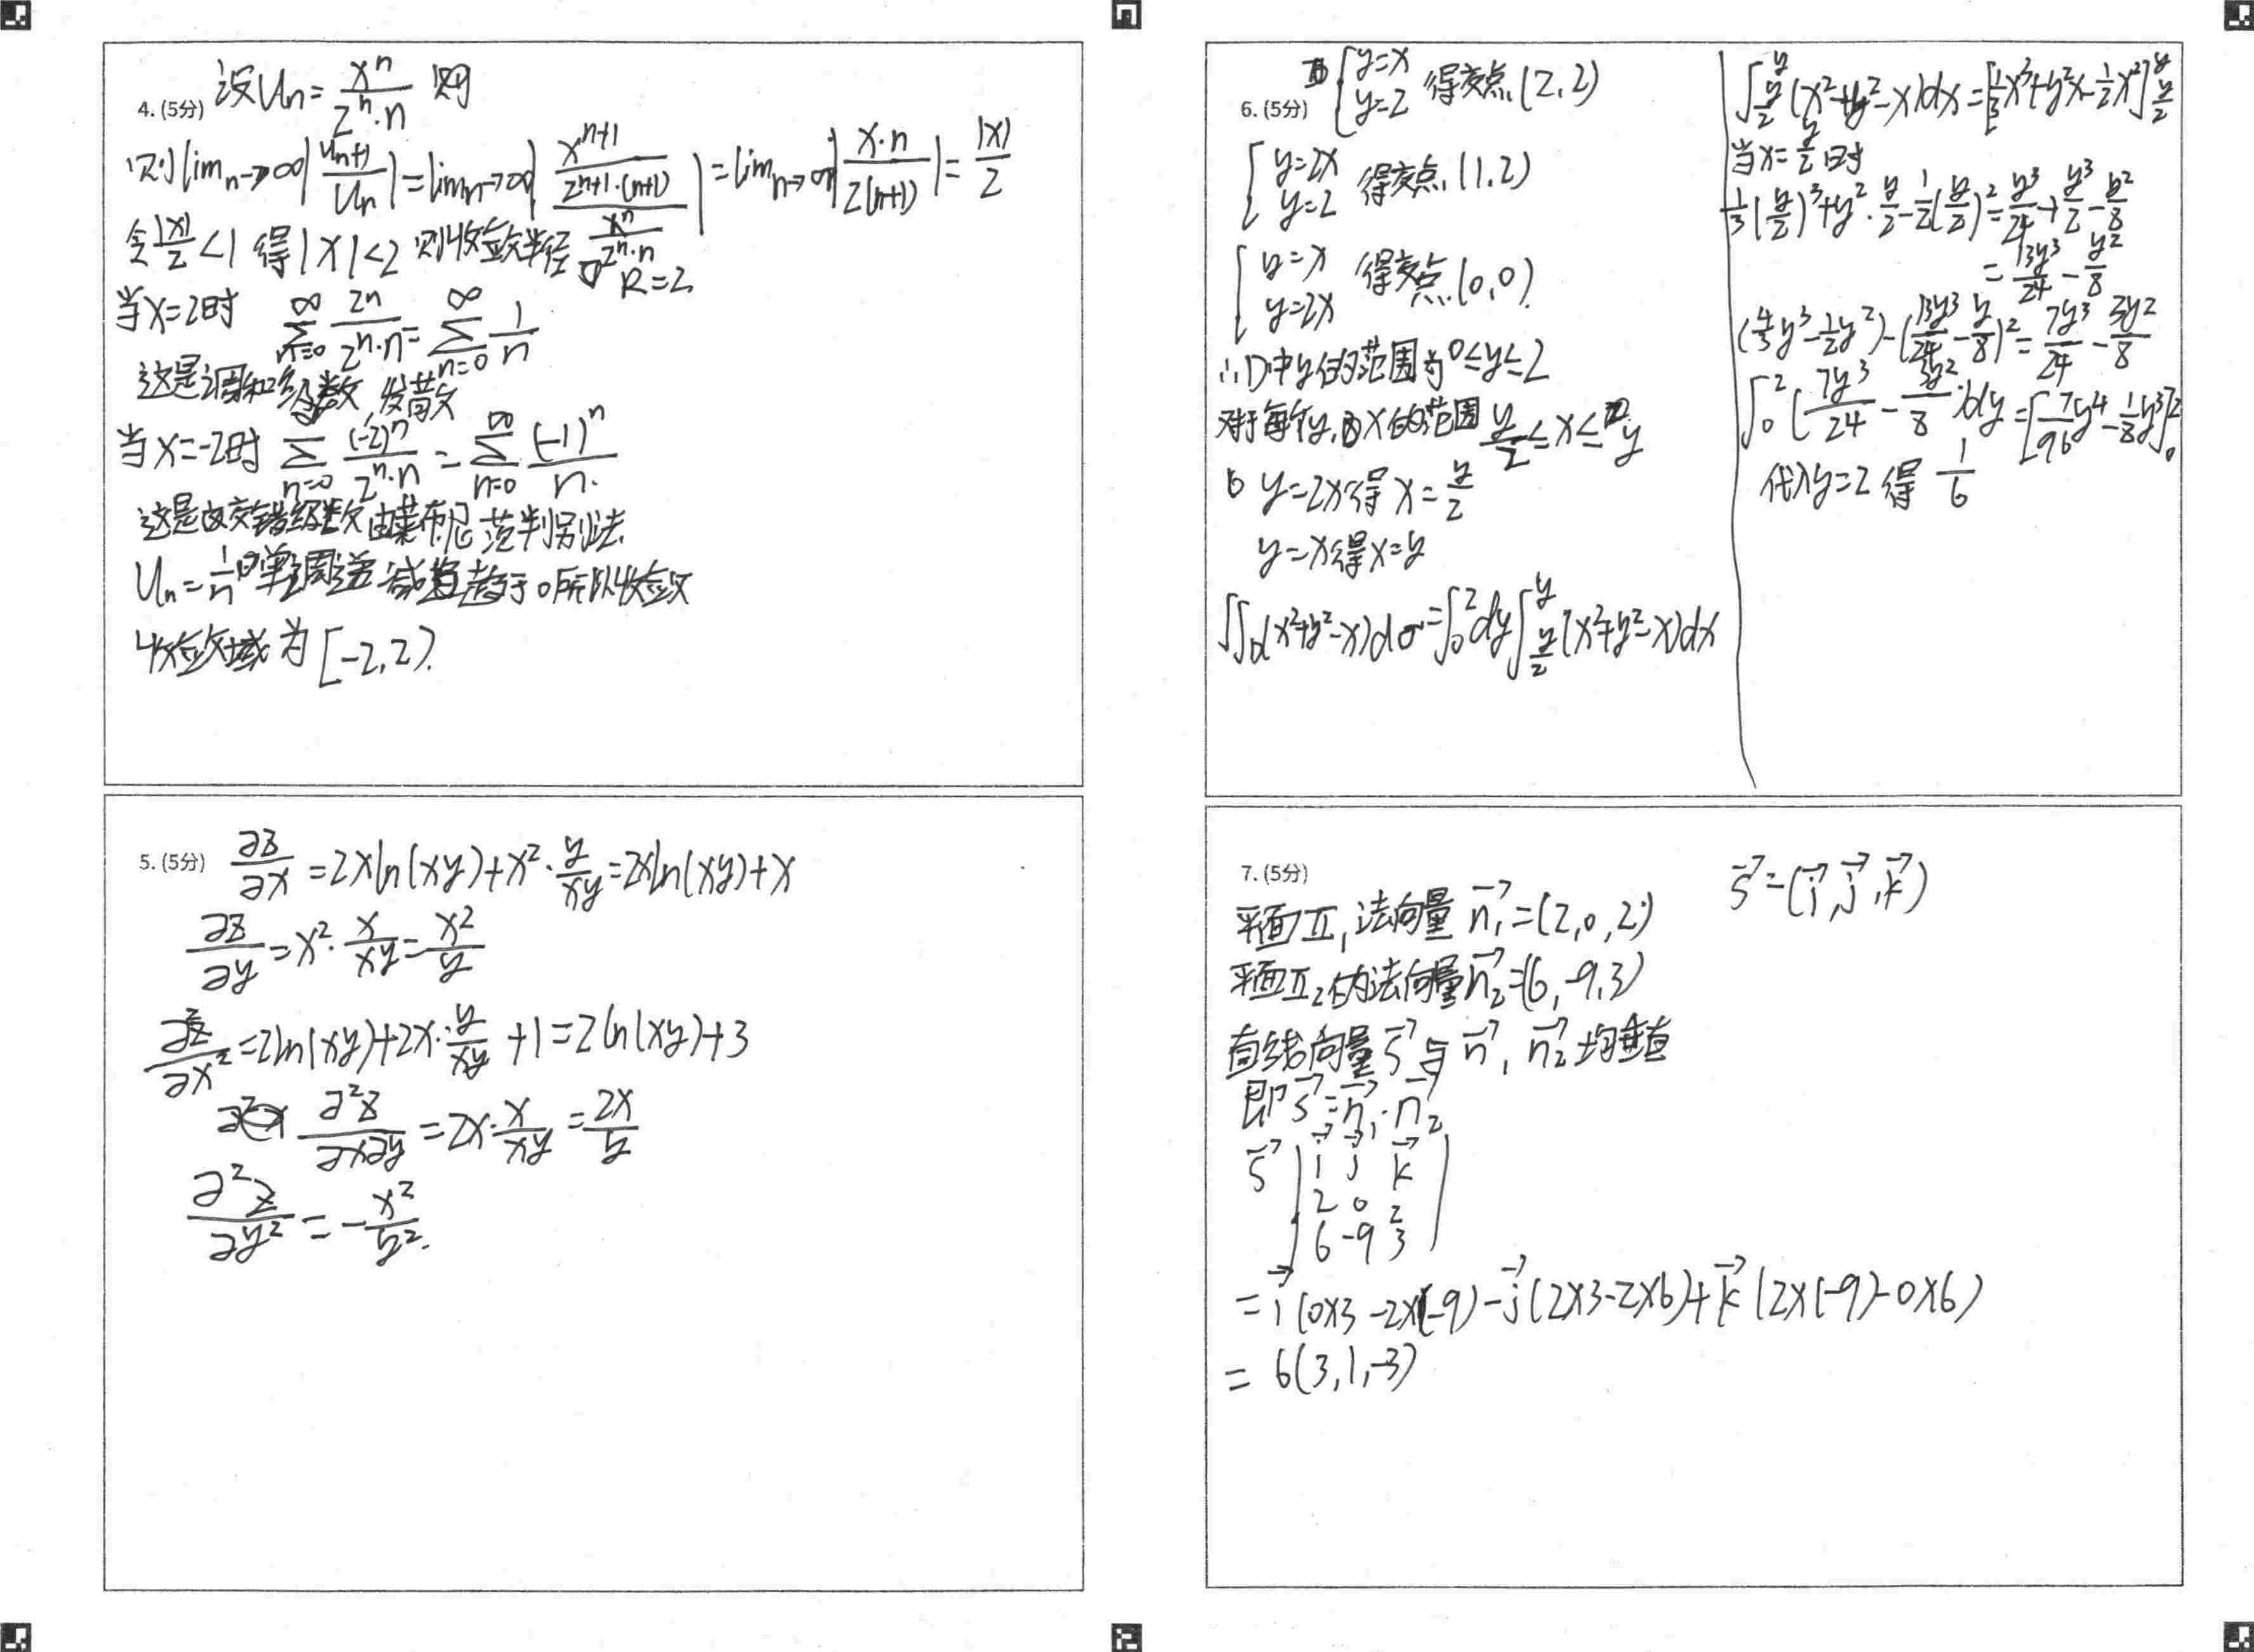 4. (5分) 设Un = x^n/(2^n·n) 则
则 lim n→∞ |Un+1/Un| = lim n→∞ |(x^(n+1)/(2^(n+1)·(n+1)))/(x^n/(2^n·n))| = lim n→∞ |x·n/(2(n+1))| = |x|/2
令|x|/2 < 1 得|x|<2 则收敛半径 R=2
当x=2时 ∑(n=0→∞) 2n/(2^n·n) = ∑(n=0→∞) 1/n
这是调和级数 发散
当x=-2时 ∑(n=0→∞) (-2)^n/(2^n·n) = ∑(n=0→∞) (-1)^n/n.
这是交错级数由莱布尼茨判别法
Un = 1/n 单调递减且趋于0所以收敛
收敛域为[-2,2).
5. (5分) ∂z/∂x = 2xln(xy)+x²·y/xy = 2xln(xy)+x
∂z/∂y = x²·x/xy = x²/y
∂²z/∂x² = 2ln(xy)+2x·y/xy+1 = 2ln(xy)+3
∂²z/∂x∂y = 2x·x/xy = 2x/y
∂²z/∂y² = -x²/y².
6. (5分) 由{y=x y=2 得交点(2,2)
{y=2x y=2 得交点(1,2)
{y=x y=2x 得交点(0,0)
∴D中y的范围为0≤y≤2
对于每个y, x的范围 y/2≤x≤y
由y=2x得x=y/2
y=x得x=y
∬D(x²+y²-x)dσ=∫₀²dy∫_(y/2)^y(x²+y²-x)dx
∫_(y/2)^y(x²+y²-x)dx=[1/3x³+y²x-1/2x²]_(y/2)^y
当x=y/2时
1/3(y/2)³+y²·y/2-1/2(y/2)²=y³/24+y³/2-y²/8
=13y³/24-y²/8
(4/3y³-1/2y²)-(13y³/24-y/8)²=7y³/24-3y²/8
∫₀²(7y³/24-3y²/8)dy=[7/96y⁴-1/8y³]₀²
代入y=2得1/6
7. (5分) s⃗=(i⃗,j⃗,k⃗)
平面Π₁法向量n₁⃗=(2,0,2)
平面Π₂的法向量n₂⃗=(6,-9,3)
直线向量s⃗与n⃗₁ n⃗₂均垂直
即s⃗=n⃗₁·n⃗₂
s⃗ |i⃗ j⃗ k⃗
2 0 2
6 -9 3|
=i⃗(0×3-2×(-9)-j⃗(2×3-2×6)+k⃗(2×(-9)-0×6)
=6(3,1,-3)